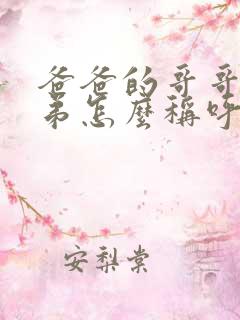 爸爸的哥哥
弟怎麼稱呼
安梨棠